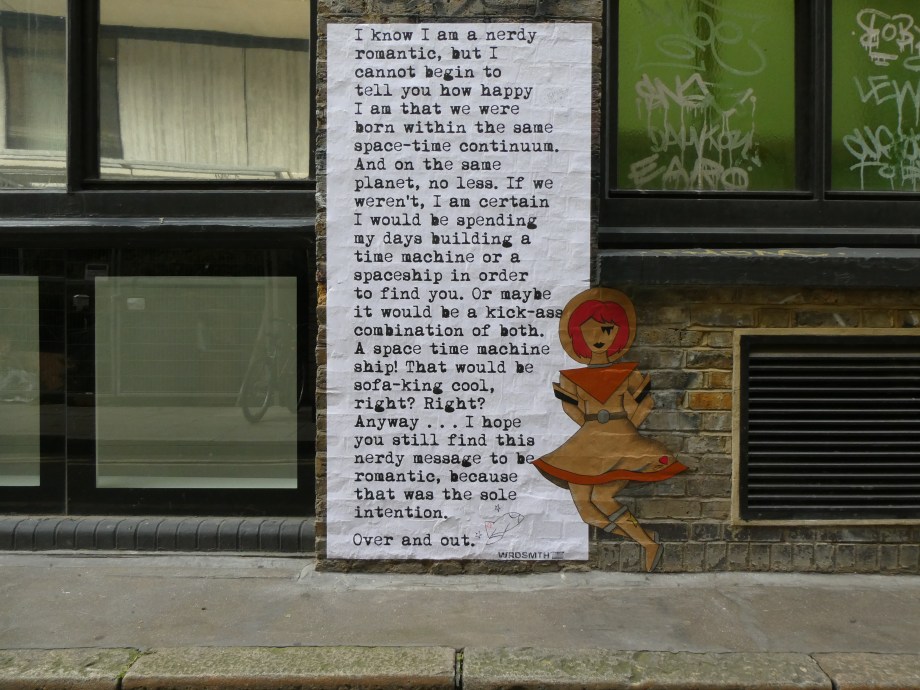 I know I am a nerdy
romantic, but I
cannot begin to
tell you how happy
I am that we were
born within the same
space-time continuum.
And on the same
planet, no less. If we
weren't, I am certain
I would be spending
my days building a
time machine or a
spaceship in order
to find you. Or maybe
it would be a kick-ass
combination of both.
A space time machine
ship! That would be
sofa-king cool,
right? Right?
Anyway . . . I hope
you still find this
nerdy message to be
romantic, because
that was the sole
intention.
Over and out.
WRDSMTH